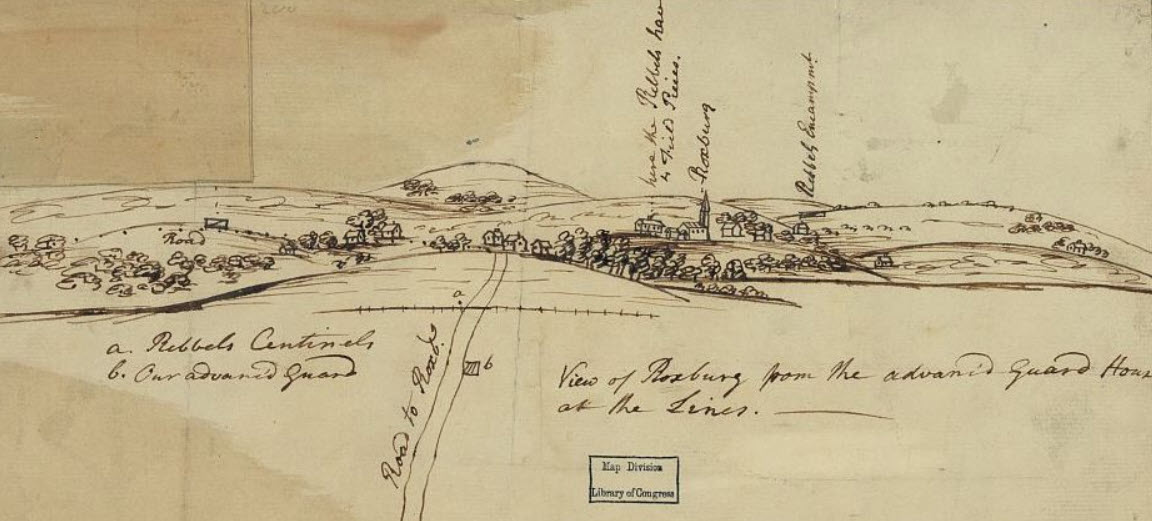 here the Rebbels have
4 Field Peices.
Roxburg
Rebbels Encampmt.
Road
a
a. Rebbels Centinels
b. Our advanc'd Guard
b
Road to Roxb.
View of Roxburg from the advanc'd Guard Hous
at the Lines.
Map Division
Library of Congress